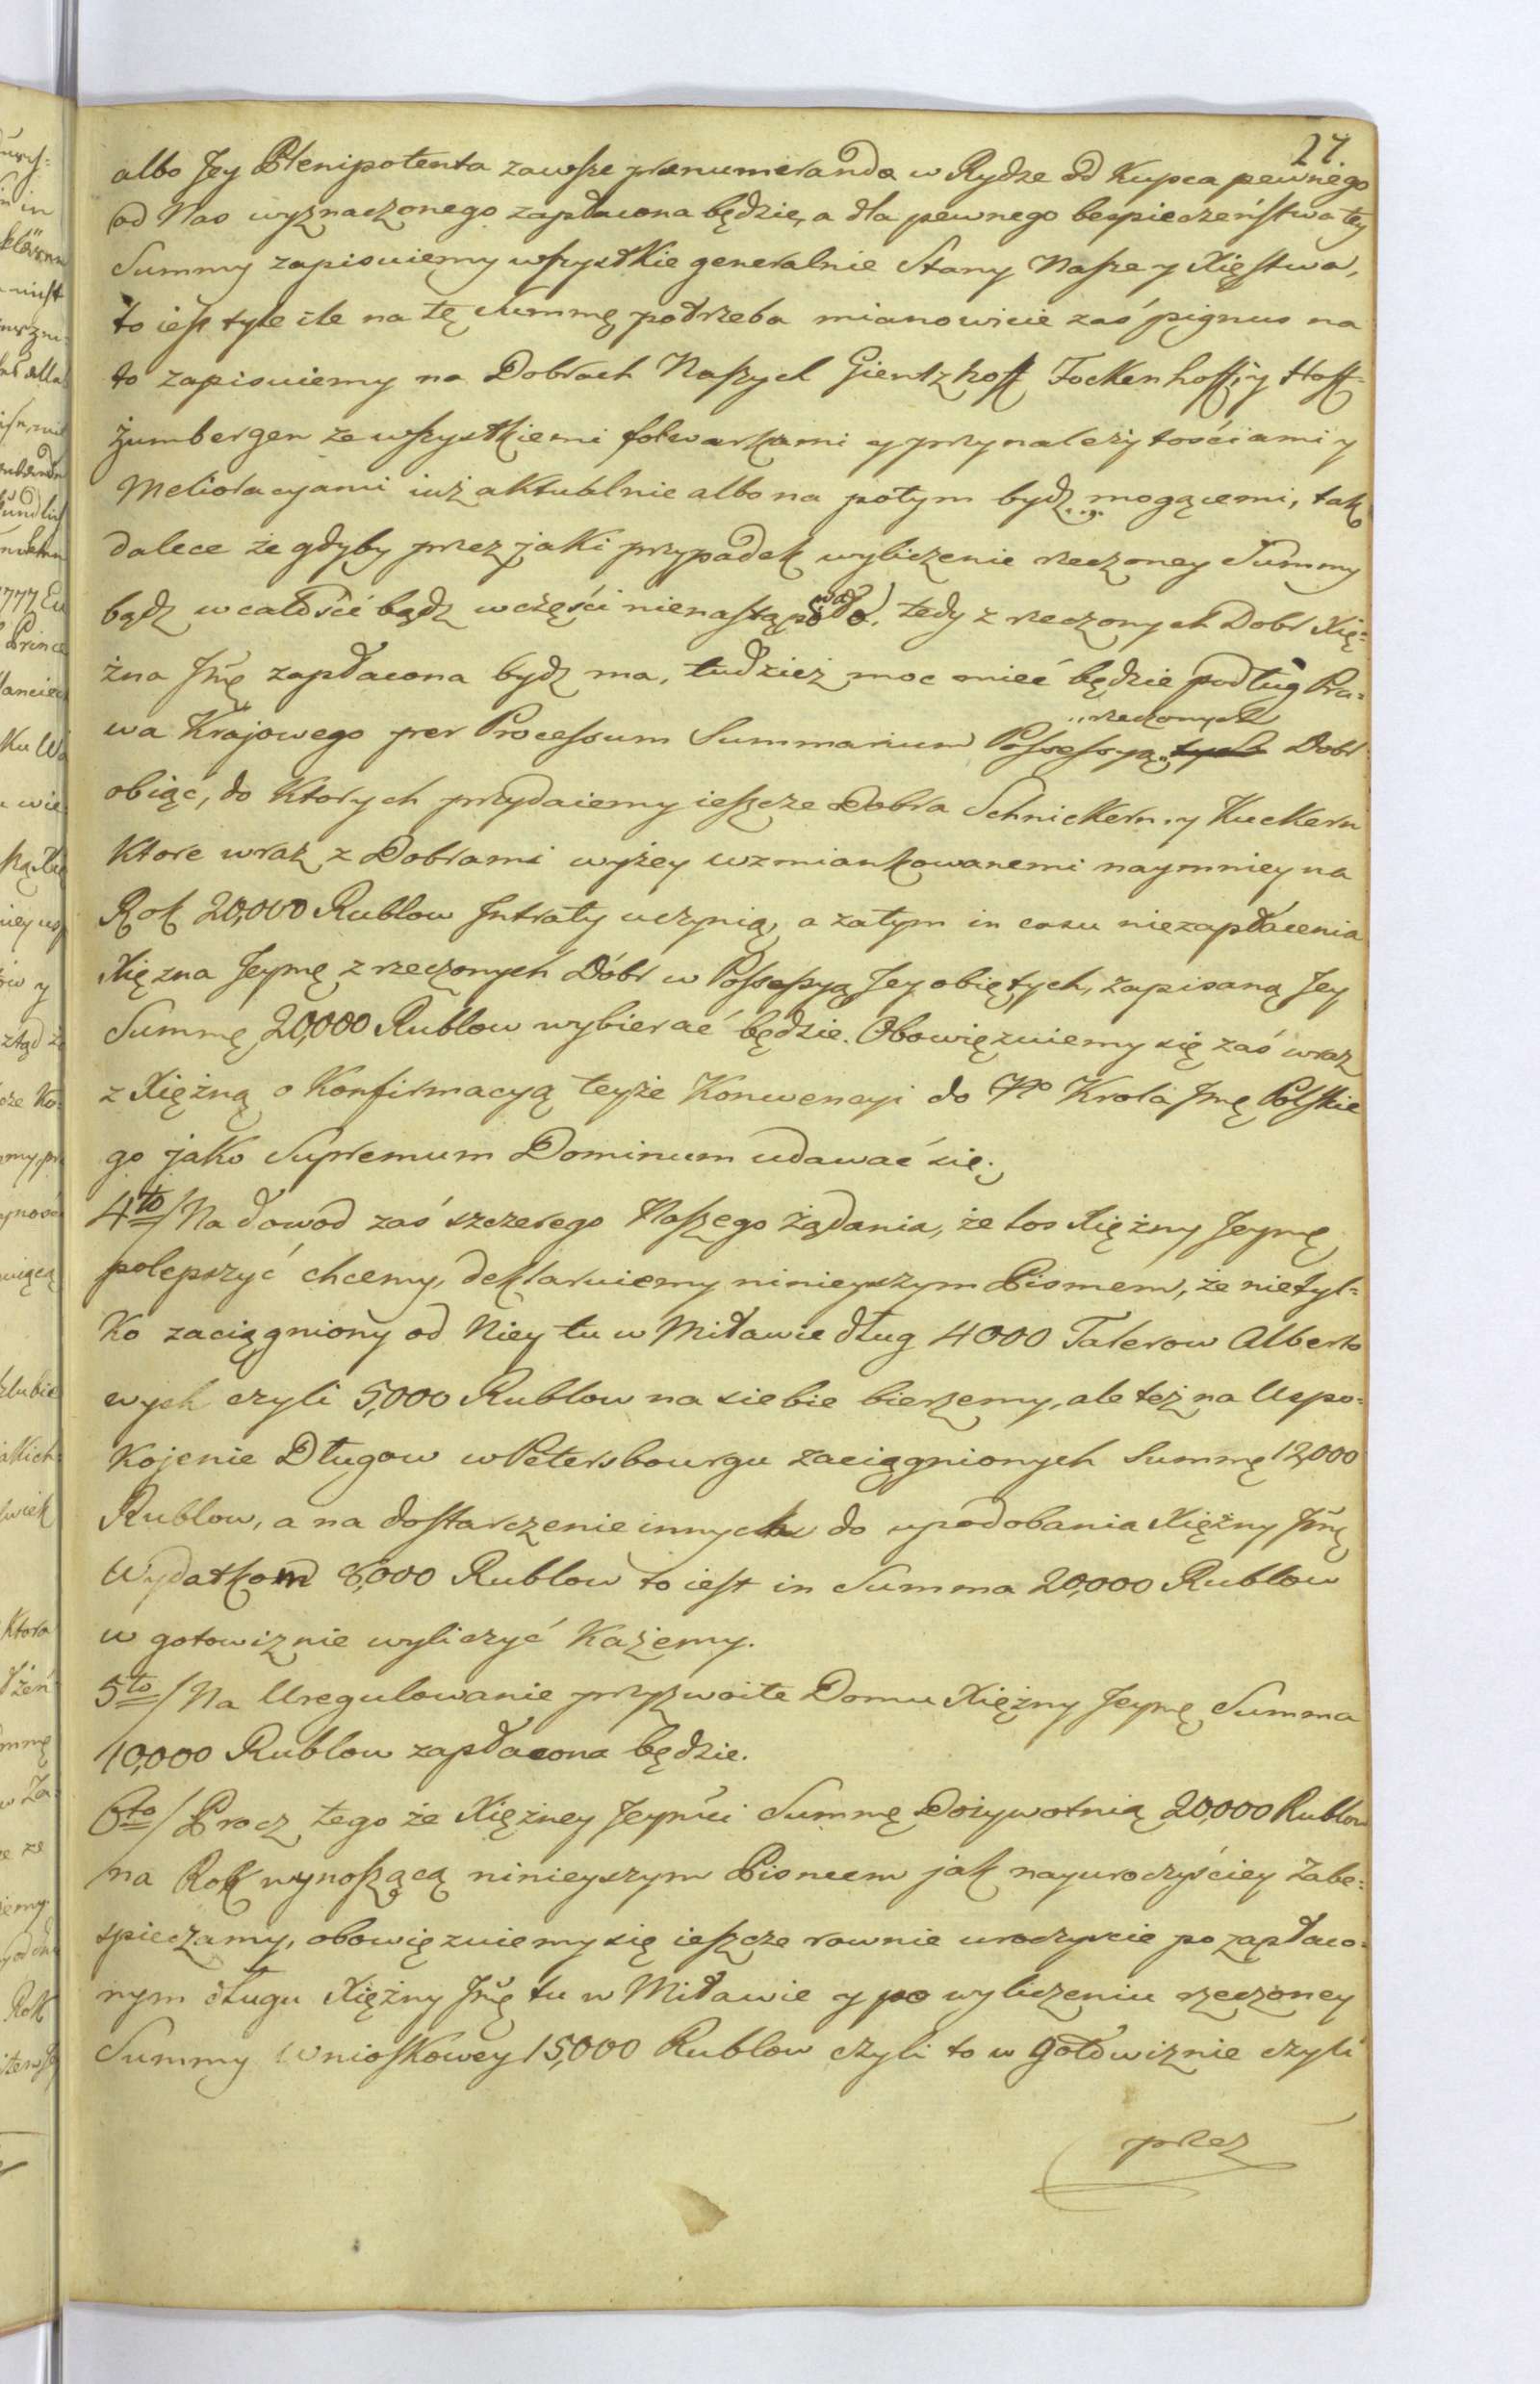 27.
albo Jey Plenipotenta zawsze prænumerando w Rydze od Kupca pewnego
od Nas wyznaczonego zapłacona będzie, a dla pewnego bespieczeństwa tey
Summy zapisuiemy wszystkie generalnie Stany Nasze y Xięstwa,
to iest tyle ile na tę Summę potrzeba mianowicie zaś pignus na
to zapisuiemy na Dobrach Naszych Gientzhoff Fockenhoff, y Hoff-
zumbergen ze wszystkiemi folwarkami y przynależytościami y
Melioracyami iuż aktualnie albo na potym bydz mogącemi, tak
dalece że gdyby przez jaki przypadek wyliczenie rzeczoney Summy
bądz w całości bądz w części nienastąpiło, tedy z rzeczonych Dobr Xię=
żna Jmę zapłacona bydz ma, tudzież moc mieć będzie podług Pra=
rzeczonych
wa Krajowego per Processum Summarium Possessyą tych Dobr
obiąć, do ktorych przydaiemy ieszcze Dobra Schnickern y Kuckern
Ktore wraz z Dobrami wyżey wzmiankowanemi naymniey na
Rok 20,000 Rublow Intraty uczynią, a zatym in casu niezapłacenia
Xiężna Jeymę z rzeczonych Dóbr w Possessyą Jey obiętych, zapisaną Jey
Summę 20,000 Rublow wybierać będzie. Obowięzuiemy się zaś wraz
z Xiężną o Konfirmacyą teyże Konwencyi do Krola Jmę Polskie
go jako Supremum Dominum udawać się.
4to/ Na dowod zaś szczerego Naszego żądania, że los Xiężny Jeymę
polepszyć chcemy, deklaruiemy ninieyszym Pismem, że nietyl=
ko zaciągniony od Niey tu w Mitawie dług 4000 Talerow Alberto
wych czyli 5,000 Rublow na siebie bierzemy, ale też na Uspo=
kojenie Długow w Petersbourgu zaciągnionych Summę 12,000
Rublow, a na dostarczenie innych do upodobania Xiężny Jmę
Wydatkom 8,000 Rublow to iest in Summa 20,000 Rublow
w gotowiznie wyliczyć Każemy.
5to/ Na Uregulowanie przyzwoite Domu Xiężny Jeymę Summa
10,000 Rublow zapłacona będzie.
6to/ Procz tego że Xiężney Jeymci Summę Dożywotnią 20,000 Rublow
na Rok wynoszącą ninieyszym Pismem jak nayuroczyściey zabe=
spieczamy, obowięzuiemy się ieszcze rownie uroczyscie po zapłaco=
nym długu Xiężny Jmę tu w Mitawie y po wyliczeniu rzeczoney
Summy Wnioskowey 15,000 Rublow czyli to w gotowiznie czyli
przez